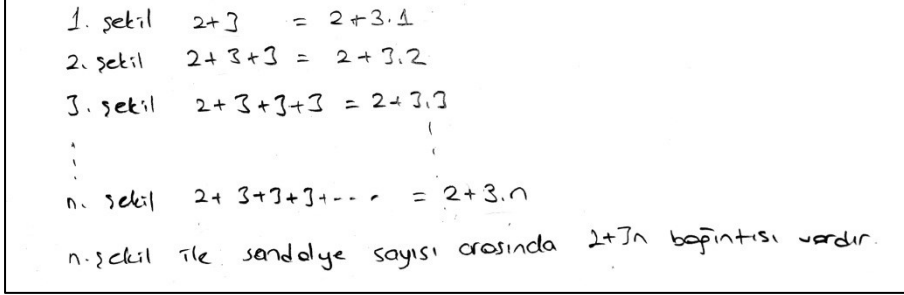 1. şekil 2+3 = 2+3.1
2. şekil 2+3+3 = 2+3.2
3. şekil 2+3+3+3 = 2+3.3
n. şekil 2+3+3+3+---- = 2+3.n
n. şekil ile sandalye sayısı arasında 2+3n bağıntısı vardır.